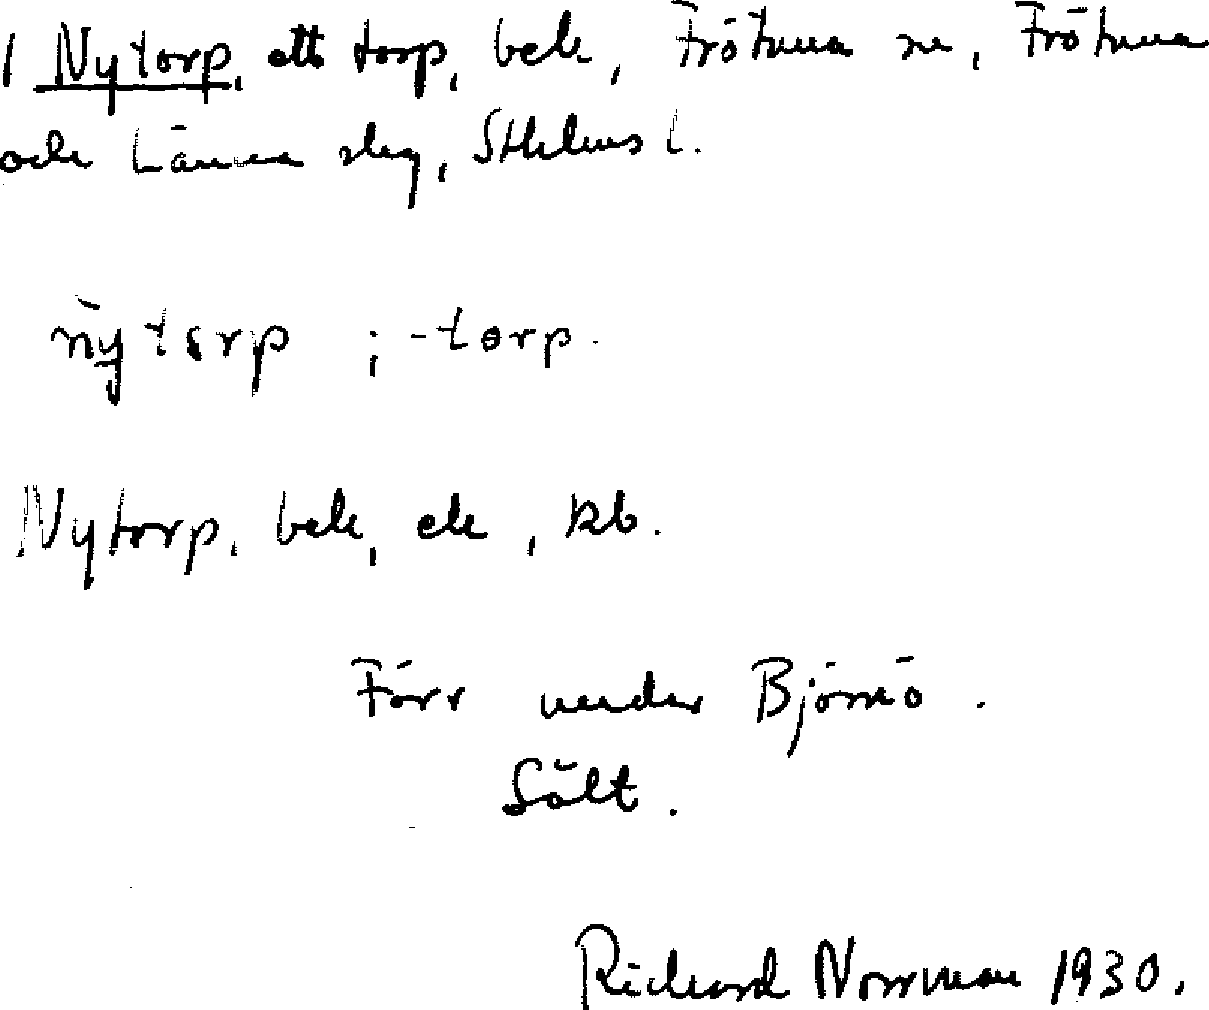 1 Nytorp, ett torp, bek, Frötuna sn, Frötuna
och Länna slg, Sthlms l.
nytorp ; -torp.
Nytorp, bek, ek, kb.
Förr under Björnö.
Sålt.
Richard Norrman 1930.